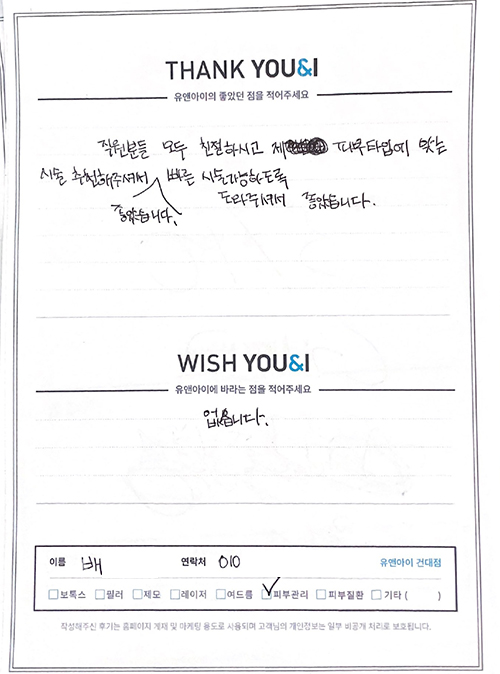 THANK YOU&I
유앤아이의 좋았던 점을 적어주세요
직원분들 모두 친절하시고 제 피부타입에 맞는
시술 추천해주셔서 빠른 시술가능하도록
좋았습니다. 도와주셔서 좋았습니다.
WISH YOU&I
유앤아이에 바라는 점을 적어주세요
없습니다.
이름 배 연락처 010 유앤아이 건대점
보톡스 필러 제모 레이저 여드름 피부관리 피부질환 기타 ( )
작성해주신 후기는 홈페이지 게재 및 마케팅 용도로 사용되며 고객님의 개인정보는 일부 비공개 처리로 보호됩니다.